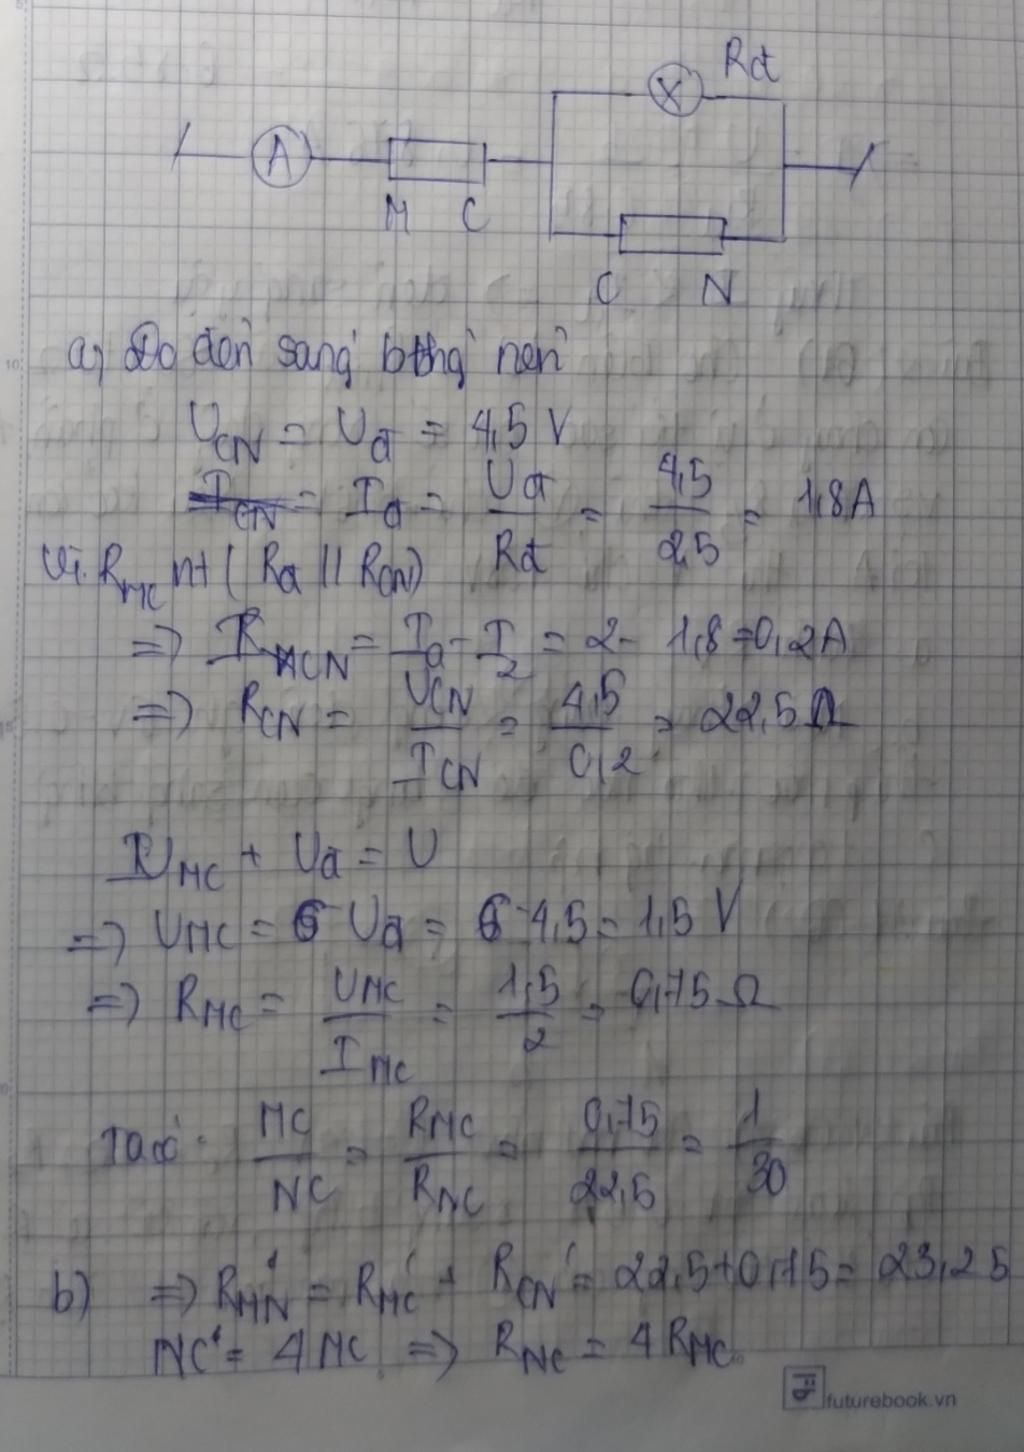 Rđ
A
M C
C N
a) Do đèn sáng bthg nên
U_CN = U_đ = 4,5 V
I_CN = I_đ = U_đ / R_đ = 4,5 / 2,5 = 1,8A
Vì R_MC nt ( R_đ // R_CN)
=> I_CN = I_a - I_2 = 2 - 1,8 = 0,2A
=> R_CN = U_CN / I_CN = 4,5 / 0,2 = 22,5 Ω
U_MC + U_đ = U
=> U_MC = 6 - U_đ = 6 - 4,5 = 1,5 V
=> R_MC = U_MC / I_MC = 1,5 / 2 = 0,75 Ω
Ta có: MC / NC = R_MC / R_NC = 0,75 / 22,5 = 1 / 30
b) => R_MN' = R_MC' + R_CN' = 22,5 + 0,75 = 23,25
NC' = 4 MC => R_NC = 4 R_MC
futurebook.vn